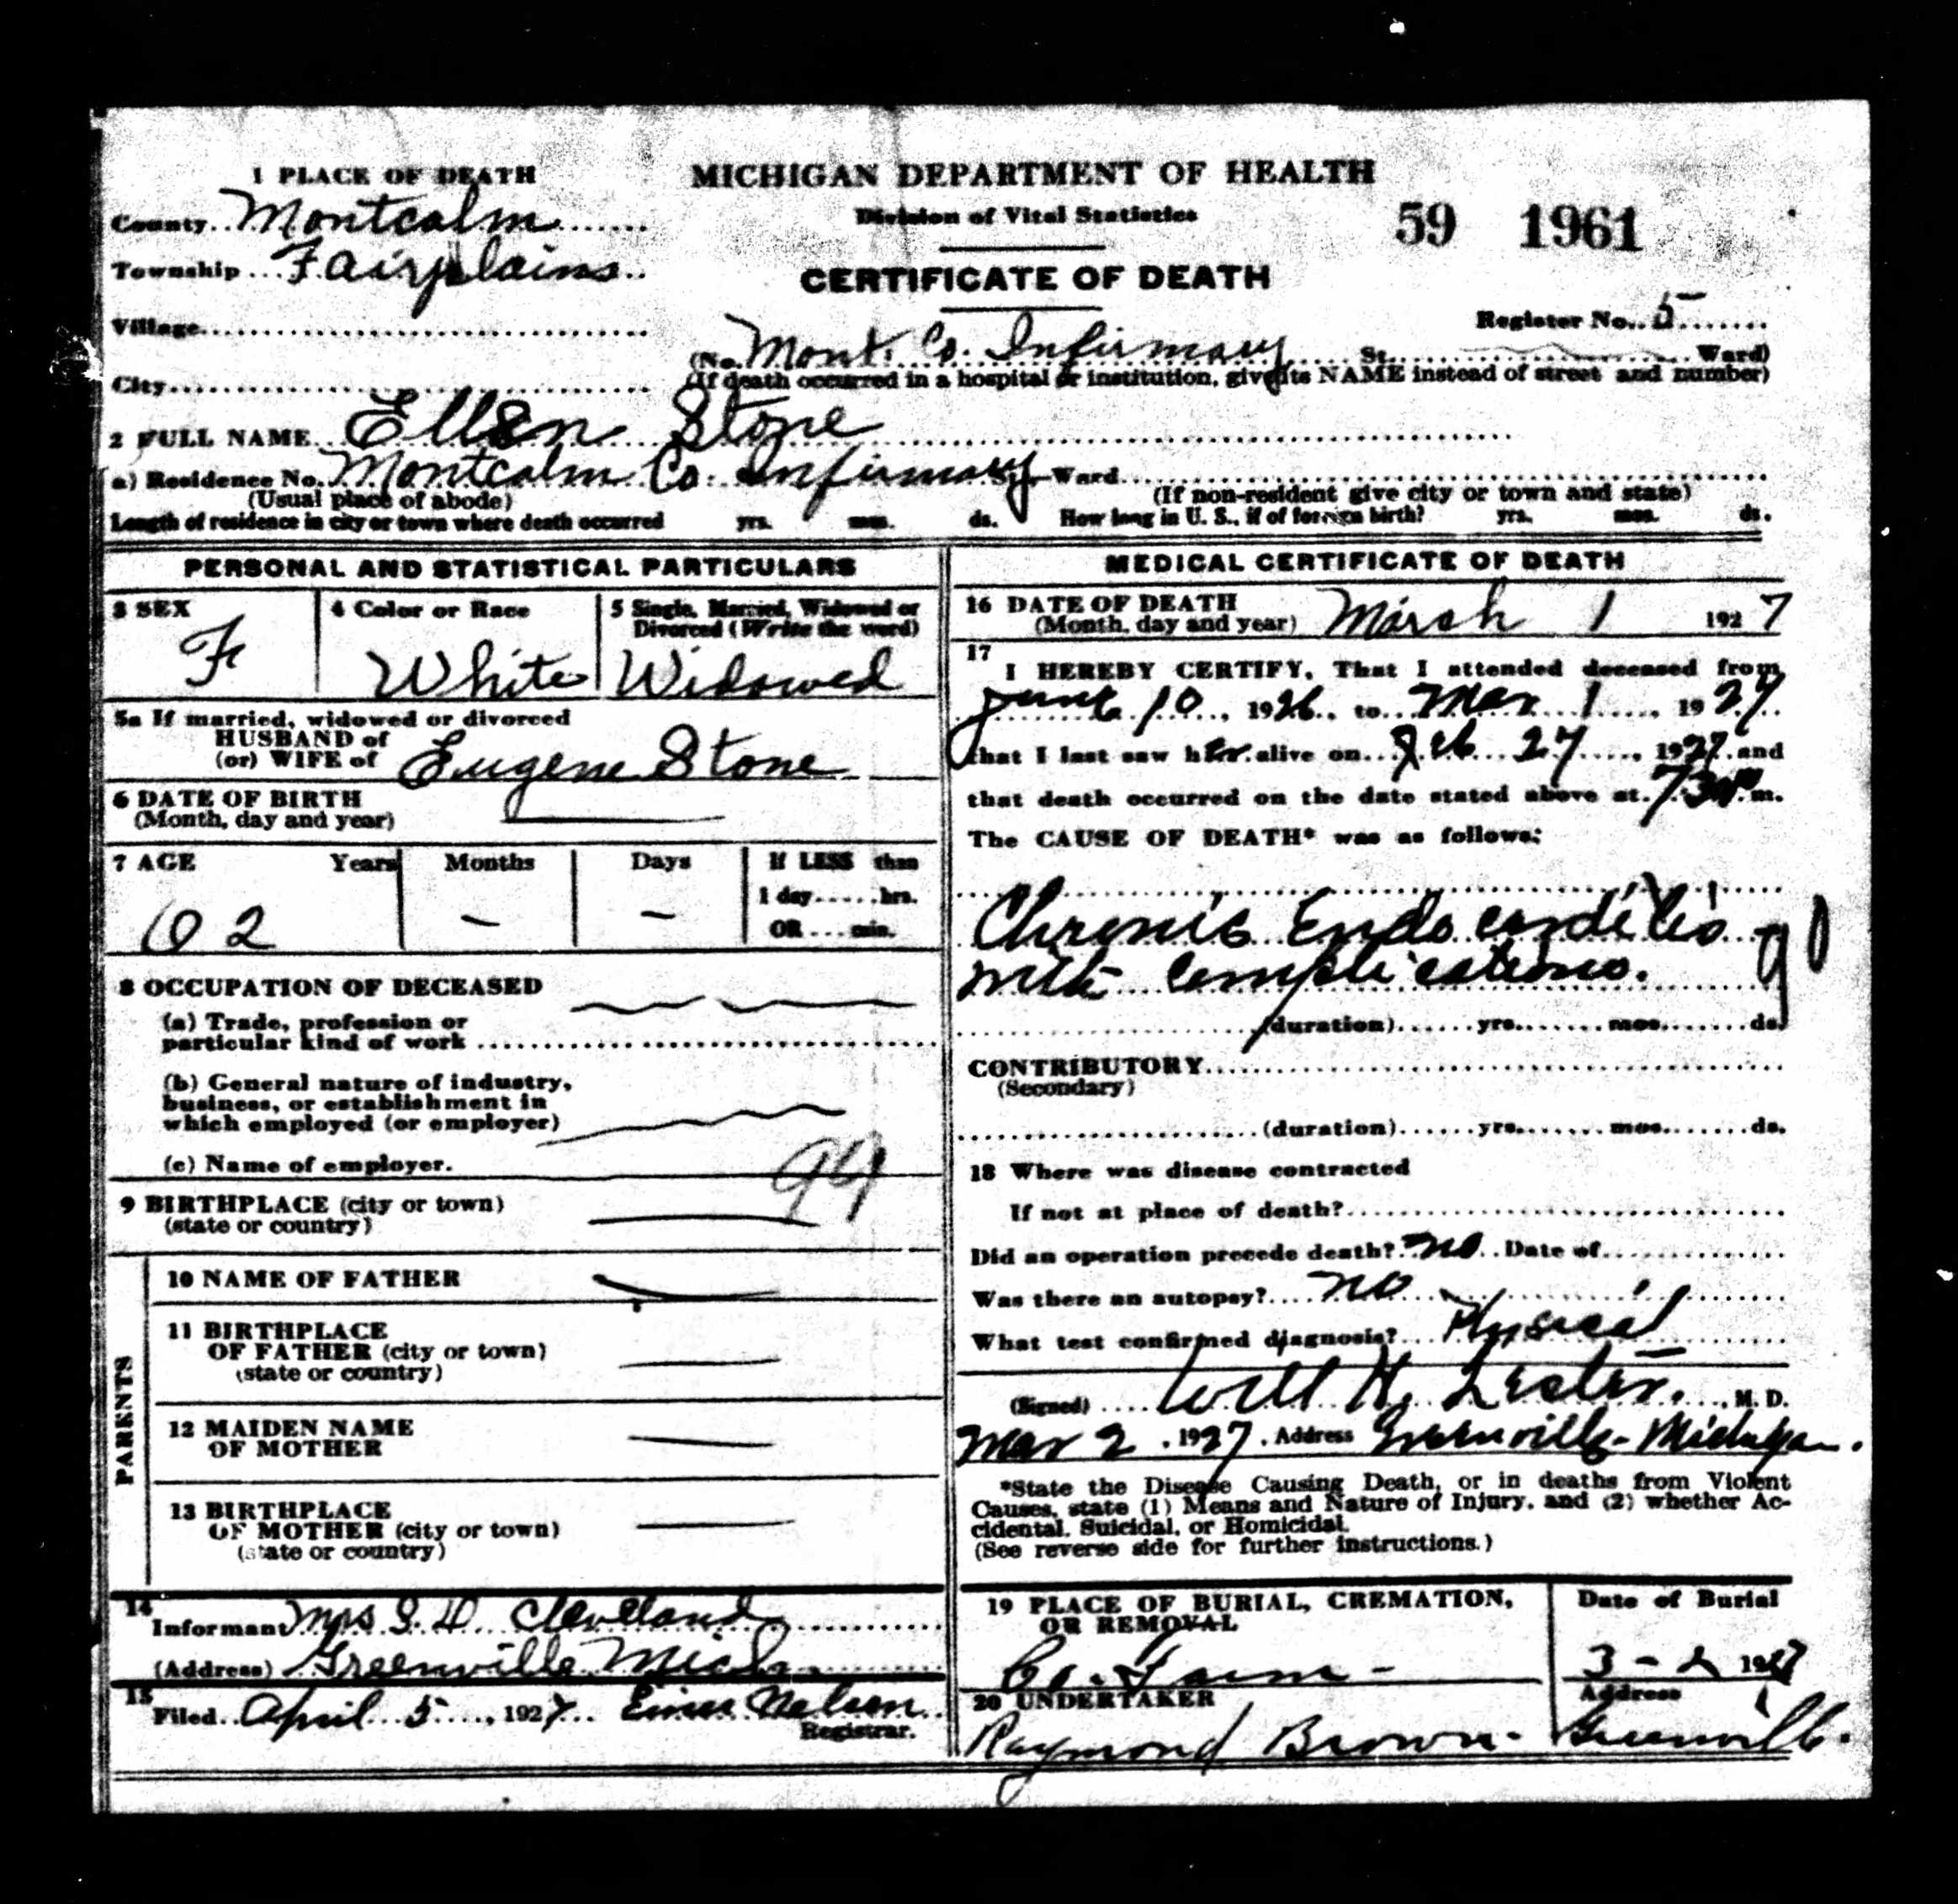 1 PLACE OF DEATH
County Montcalm
Township Fairplains
Village
City
MICHIGAN DEPARTMENT OF HEALTH
Division of Vital Statistics
59 1961
CERTIFICATE OF DEATH
Register No. 5
(No. Mont. Co. Infirmary St. Ward)
(If death occurred in a hospital or institution, give its NAME instead of street and number)
2 FULL NAME Ellen Stone
a) Residence No. Montcalm Co. Infirmary St. Ward
(Usual place of abode)
(If non-resident give city or town and state)
Length of residence in city or town where death occurred yrs. mos. ds. How long in U. S., if of foreign birth? yrs. mos. ds.
PERSONAL AND STATISTICAL PARTICULARS
3 SEX
F
4 Color or Race
White
5 Single, Married, Widowed or
Divorced (Write the word)
Widowed
5a If married, widowed or divorced
HUSBAND of
(or) WIFE of Eugene Stone
6 DATE OF BIRTH
(Month, day and year)
7 AGE Years Months Days If LESS than
1 day......hrs.
OR....min.
62 - -
8 OCCUPATION OF DECEASED
(a) Trade, profession or
particular kind of work
(b) General nature of industry,
business, or establishment in
which employed (or employer)
(c) Name of employer.
99
9 BIRTHPLACE (city or town)
(state or country)
PARENTS
10 NAME OF FATHER
11 BIRTHPLACE
OF FATHER (city or town)
(state or country)
12 MAIDEN NAME
OF MOTHER
13 BIRTHPLACE
OF MOTHER (city or town)
(state or country)
14
Informant Mrs Cleveland
(Address) Greenville Mich
15
Filed April 5, 1927 Nelson
Registrar.
MEDICAL CERTIFICATE OF DEATH
16 DATE OF DEATH
(Month, day and year) March 1 1927
17
I HEREBY CERTIFY, That I attended deceased from
June 10, 1926, to Mar 1, 1927
that I last saw her alive on Feb 27, 1927 and
that death occurred on the date stated above at 730 m.
The CAUSE OF DEATH* was as follows:
Chronic Endocarditis 90
with complications.
(duration)......yrs.......mos.......ds.
CONTRIBUTORY
(Secondary)
(duration)......yrs.......mos.......ds.
18 Where was disease contracted
If not at place of death?
Did an operation precede death? no Date of
Was there an autopsy? no
What test confirmed diagnosis? Physical
(Signed) Will H. Lester, M. D.
Mar 2, 1927, Address Greenville - Michigan.
*State the Disease Causing Death, or in deaths from Violent
Causes, state (1) Means and Nature of Injury, and (2) whether Ac-
cidental, Suicidal, or Homicidal.
(See reverse side for further instructions.)
19 PLACE OF BURIAL, CREMATION,
OR REMOVAL
Co. Farm -
Date of Burial
3 - 2 1927
20 UNDERTAKER
Raymond Brown -
Address
Greenville.